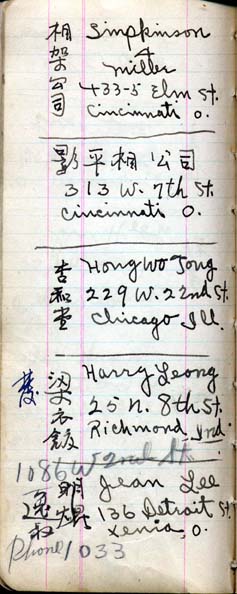 相架公司
Simpkinson
&
Miller
433-5 Elm St.
Cincinnati O.
影平相公司
313 W. 7th St.
Cincinnati O.
杏和堂
Hong Wo Tong
229 W. 22nd St.
Chicago Ill.
梁衣
Harry Leong
25 N. 8th St.
Richmond Ind.
1086 W 2nd St.
明
Jean Lee
136 Detroit St.
Xenia, O.
Phone 1033